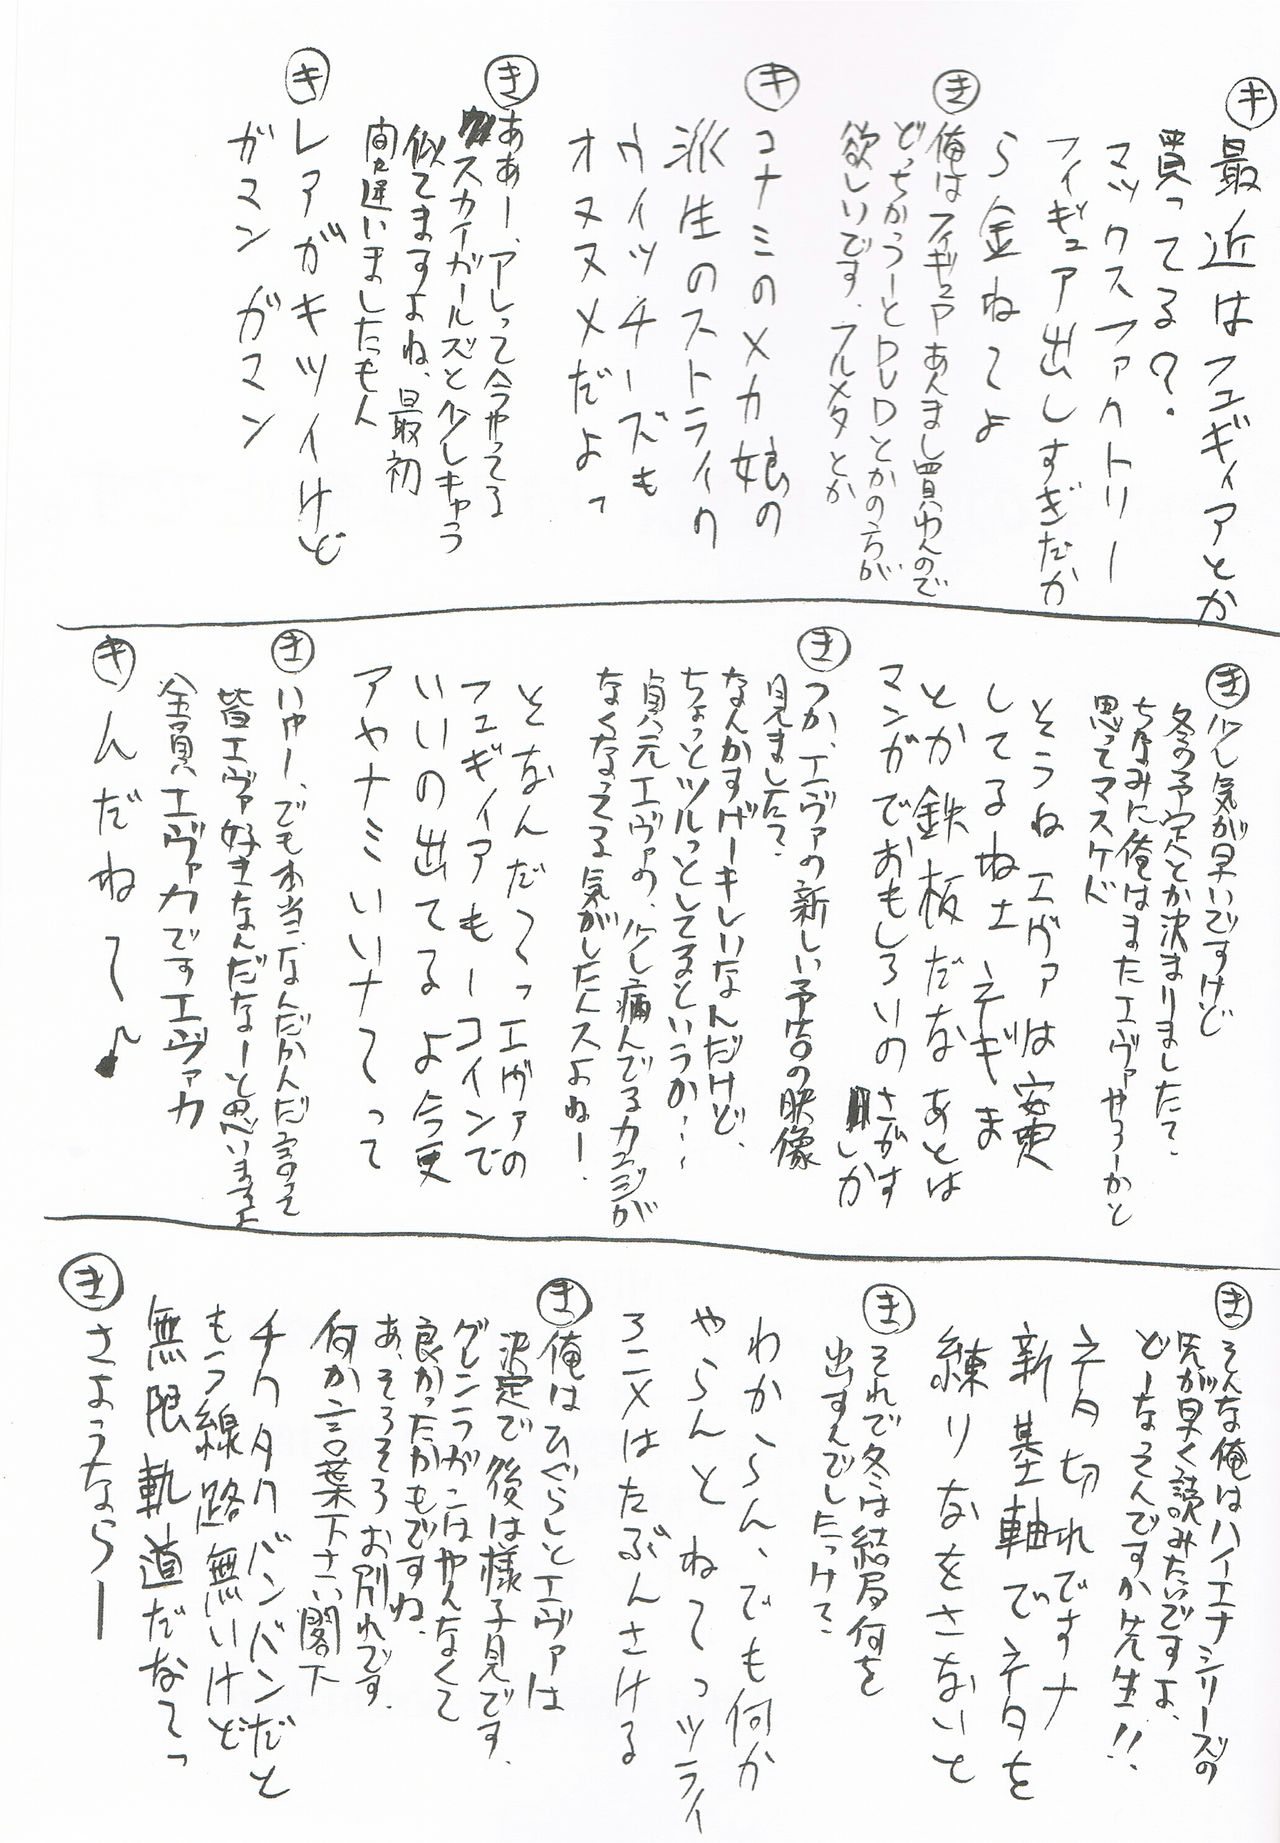 キ
最近はフュギィアとか
買ってる?
マックスファクトリー
フィギュア出しすぎだか
ら金ねてよ
き
俺はフィギュアあんまし買わんので
どっちかつーとDVDとかの方が
欲しいです。フルメタとか
キ
コナミのメカ娘の
派生のストライク
ウィッチーズも
オヌヌメだよっ
き
ああー、アレって今やってる
スカイガールズと少しキャラ
似てますよね、最初
間違いましたもん
キ
レアがキツイけど
ガマンガマン
き
少し気が早いですけど
冬の予定とか決まりました?
ちなみに俺はまたエヴァやろーかと
思ってマスケド
そうねエヴァは安定
してるね土ネギま
とか鉄板だなあとは
マンガでおもしろいのさがす
しか
き
つか、エヴァの新しい予告の映像
見ました?
なんかすげーキレイなんだけど、
ちょっとツルっとしてるというか…
貞元エヴァの、少し病んでるカンジが
なくなってる気がしたんスよねー。
となんだ~っエヴァの
フュギィアもーコインで
いいの出てるよ今更
アヤナミいいナてって
き
いやー、でも本当、なんだかんだ言って
皆エヴァ好きなんだなーと思いますよ
全員エヴァカですエヴァカ
キ
んだねて~♪
き
そんな俺はハイエナシリーズの
先が早く読みたいですよ、
どーなるんですか先生!!
ネタ切れですナ
新基軸でネタを
練りなをさないと
き
それで冬は結局何を
出すんでしたっけ?
わからん、でも何か
やらんとねてっツライ
ろニメはたぶんさける
き
俺はひぐらしとエヴァは
決定で後は様子見です。
グレンラガンはやんなくて
良かったかもですね。
あ、そろそろお別れです。
何か言葉下さい閣下
チクタクバンバンだと
もう線路無いけど
無限軌道だなてっ
き
さようならー